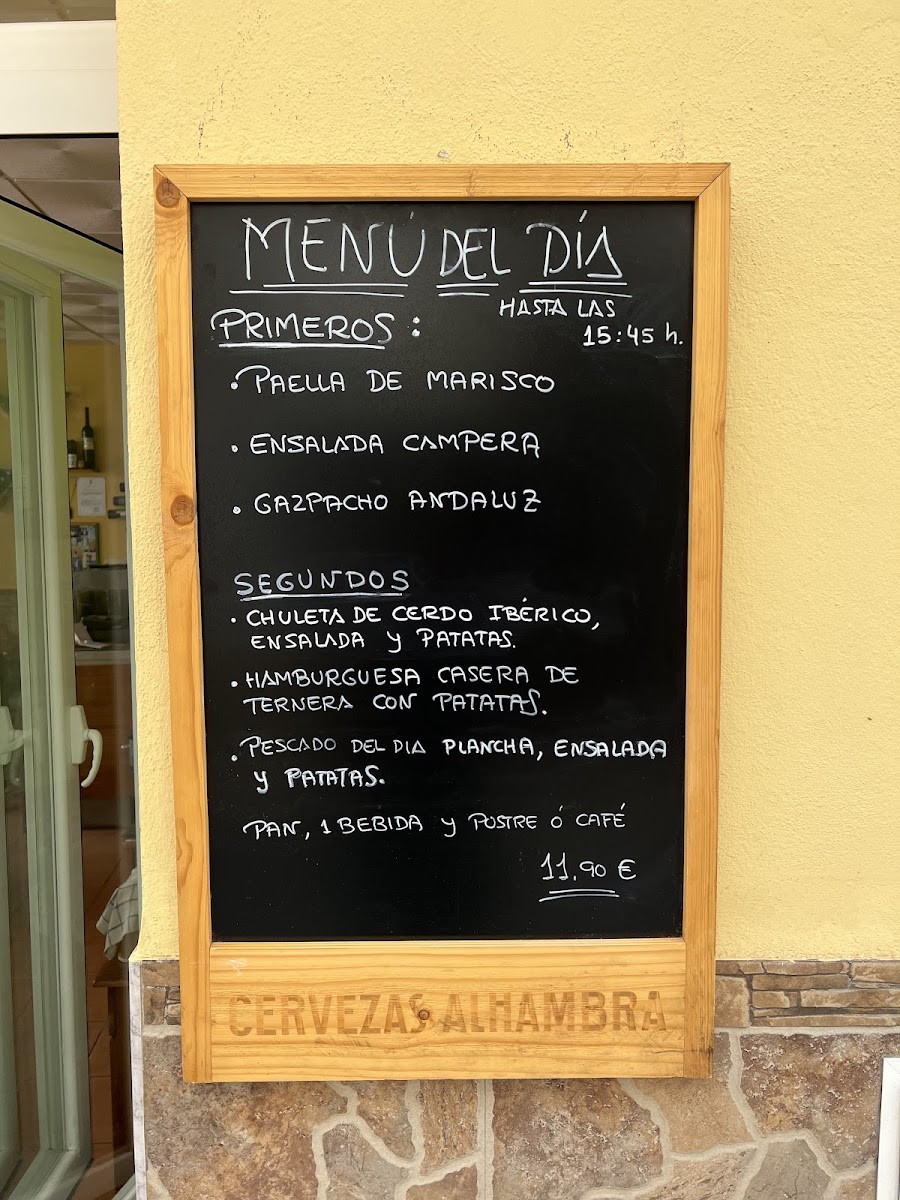 MENÚ DEL DÍA
HASTA LAS
15:45 h.
PRIMEROS:
• PAELLA DE MARISCO
• ENSALADA CAMPERA
• GAZPACHO ANDALUZ
SEGUNDOS
• CHULETA DE CERDO IBÉRICO,
ENSALADA Y PATATAS.
• HAMBURGUESA CASERA DE
TERNERA CON PATATAS.
• PESCADO DEL DIA PLANCHA, ENSALADA
Y PATATAS.
PAN, 1 BEBIDA Y POSTRE Ó CAFÉ
11,90 €
CERVEZAS ALHAMBRA